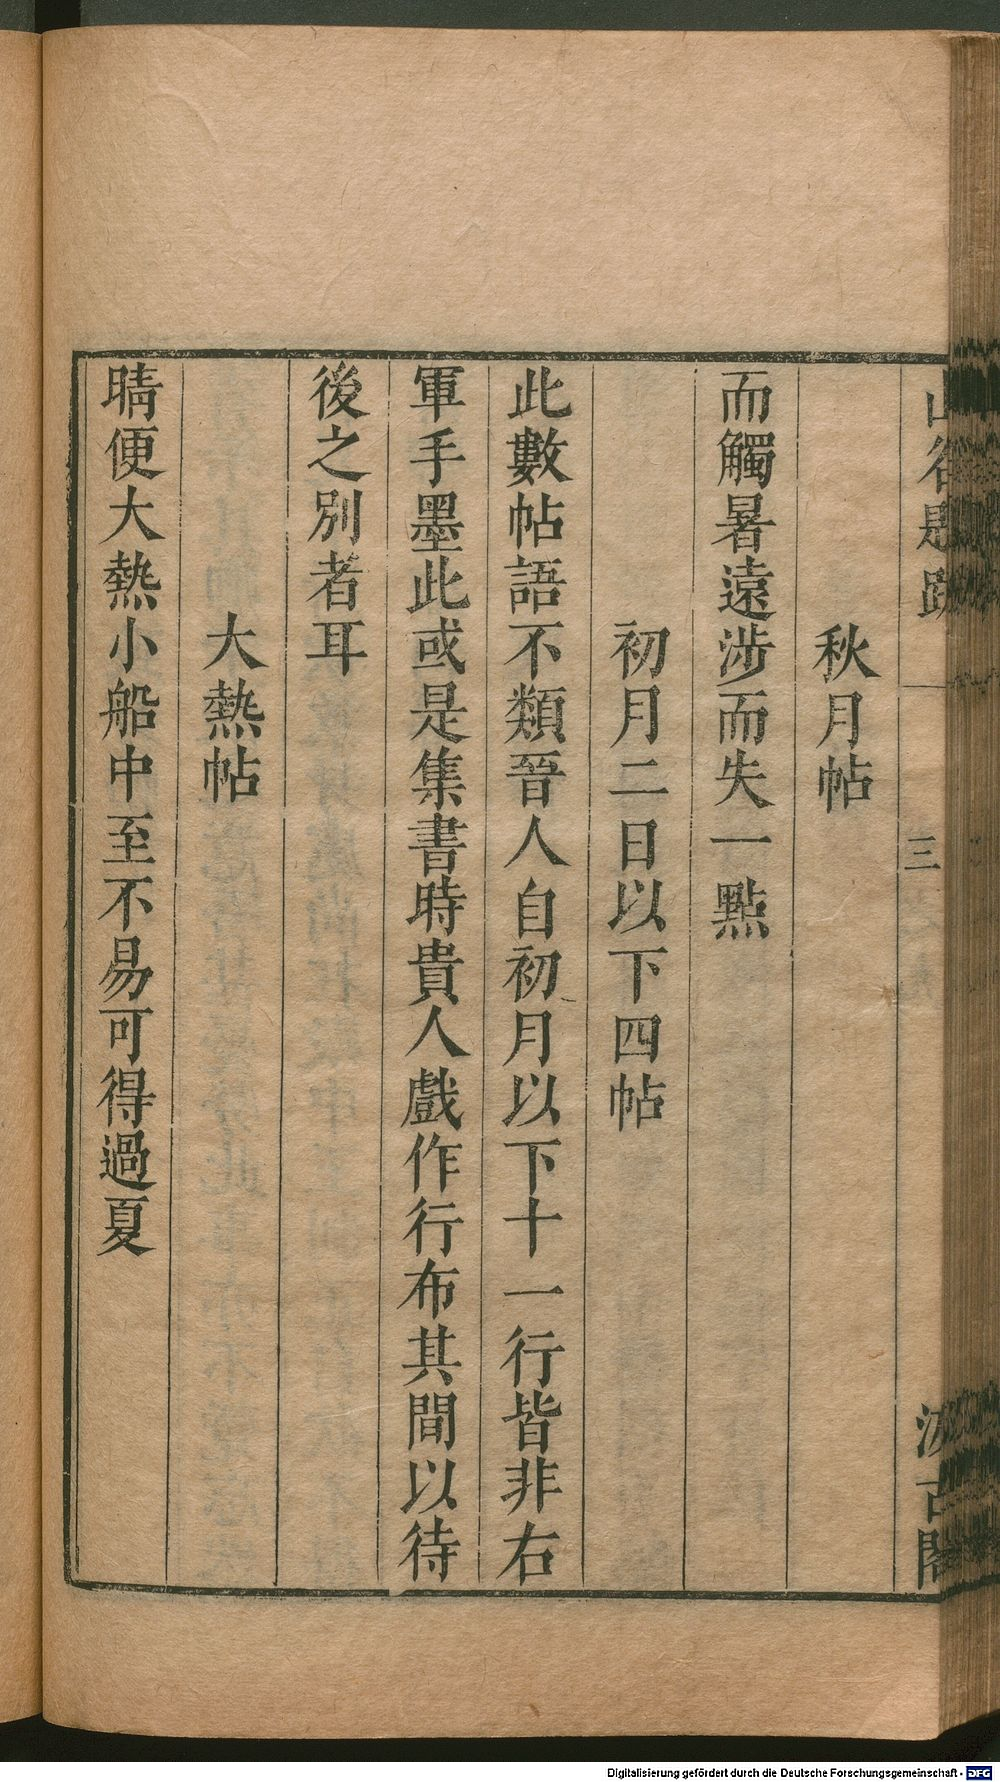 山谷題跋
三
汲古閣
秋月帖
而觸暑遠涉而失一點
初月二日以下四帖
此數帖語不類晉人自初月以下十一行皆非右
軍手墨此或是集書時貴人戲作行布其間以待
後之別者耳
大熱帖
晴便大熱小船中至不易可得過夏
Digitalisierung gefördert durch die Deutsche Forschungsgemeinschaft - DFG